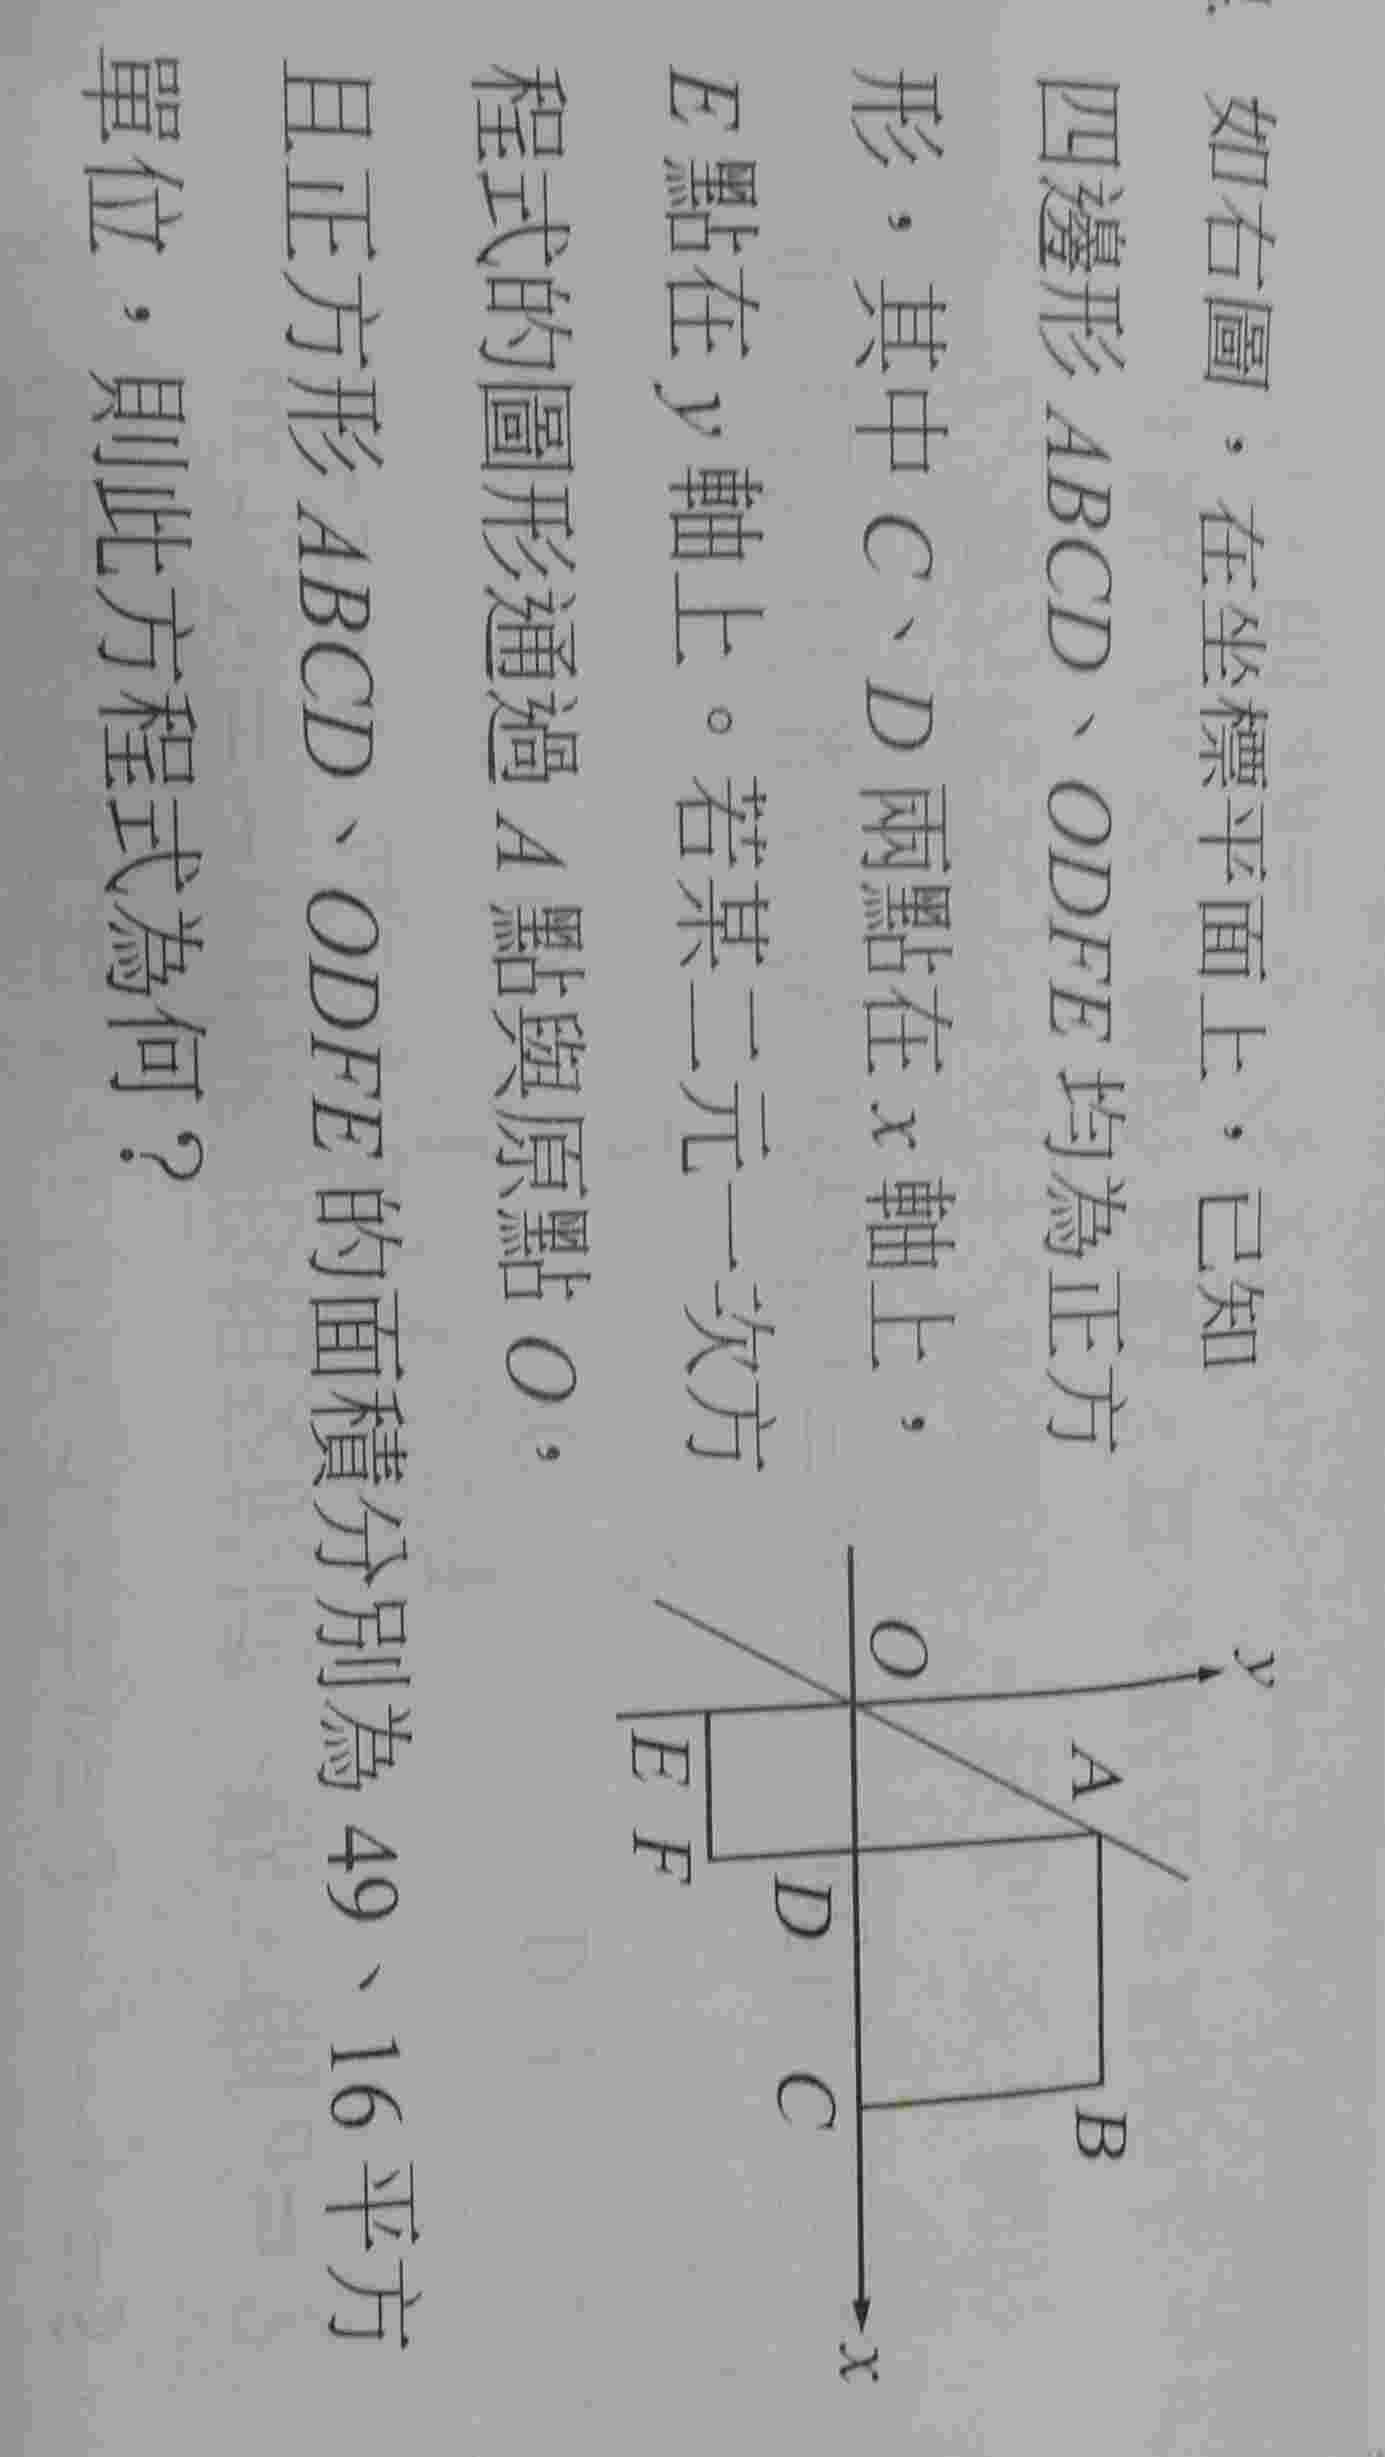 如右圖，在坐標平面上，已知
四邊形 ABCD、ODFE 均為正方
形，其中 C、D 兩點在 x 軸上，
E 點在 y 軸上。若某二元一次方
程式的圖形通過 A 點與原點 O，
且正方形 ABCD、ODFE 的面積分別為 49、16 平方
單位，則此方程式為何？
y
A
B
O
D
C
x
E F